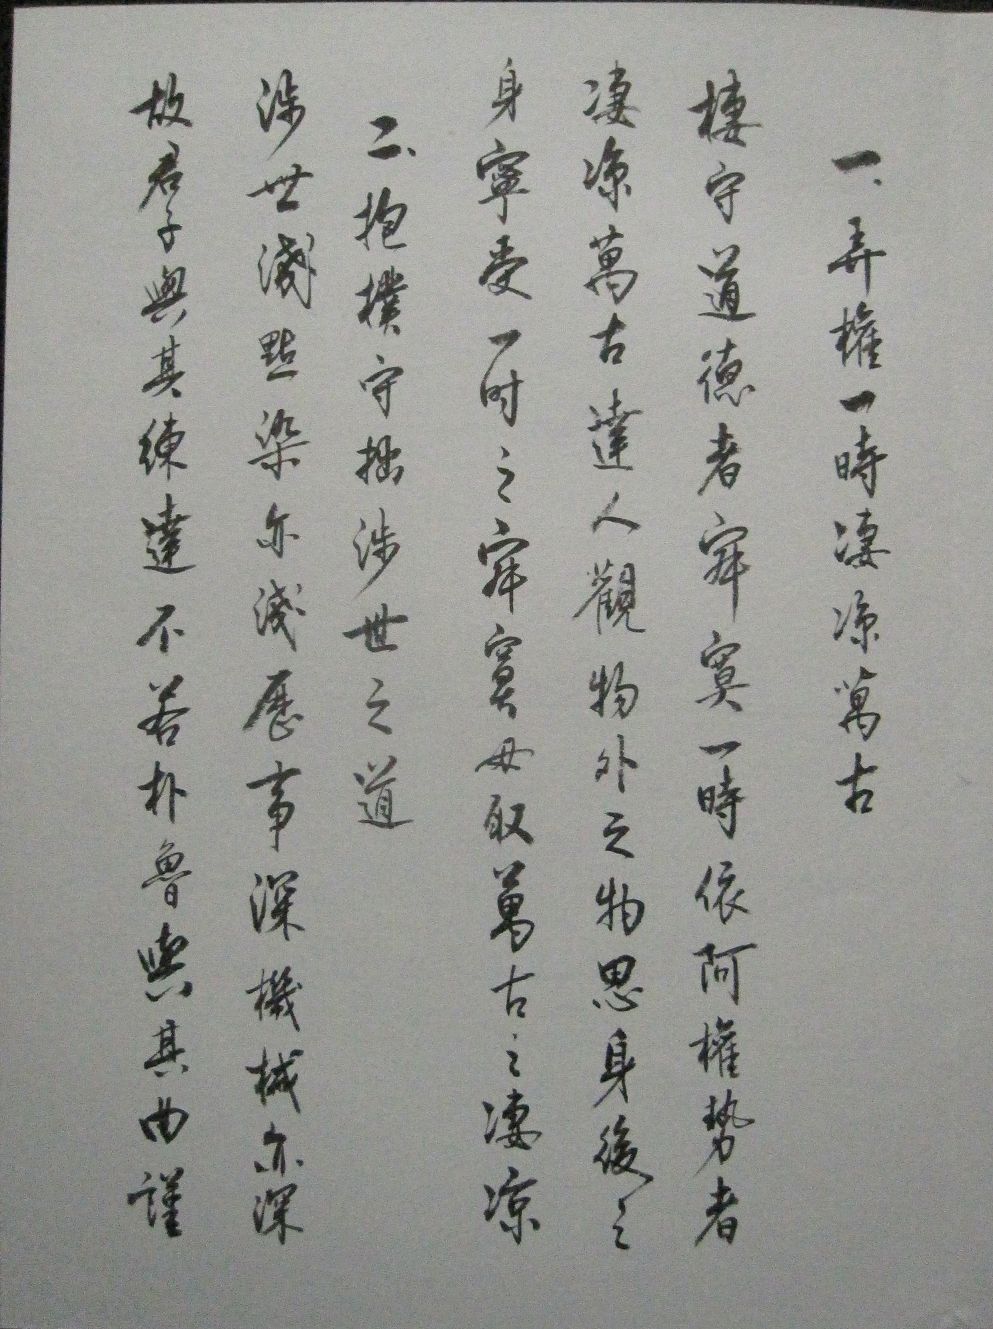 一、弄權一時凄凉萬古
棲守道德者寂寞一時依阿權勢者
凄凉萬古達人觀物外之物思身後之
身寧受一时之寂寞毋取萬古之凄凉
二、抱樸守拙涉世之道
涉世淺點染亦淺歷事深機械亦深
故君子與其練達不若朴魯與其曲謹